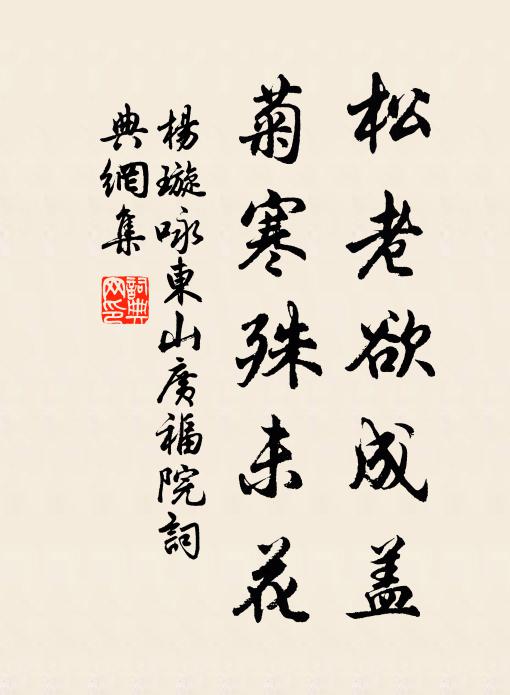 松老欲成盖
菊寒殊未花
楊璇咏東山廣福院詞
典網集
詞典
网印